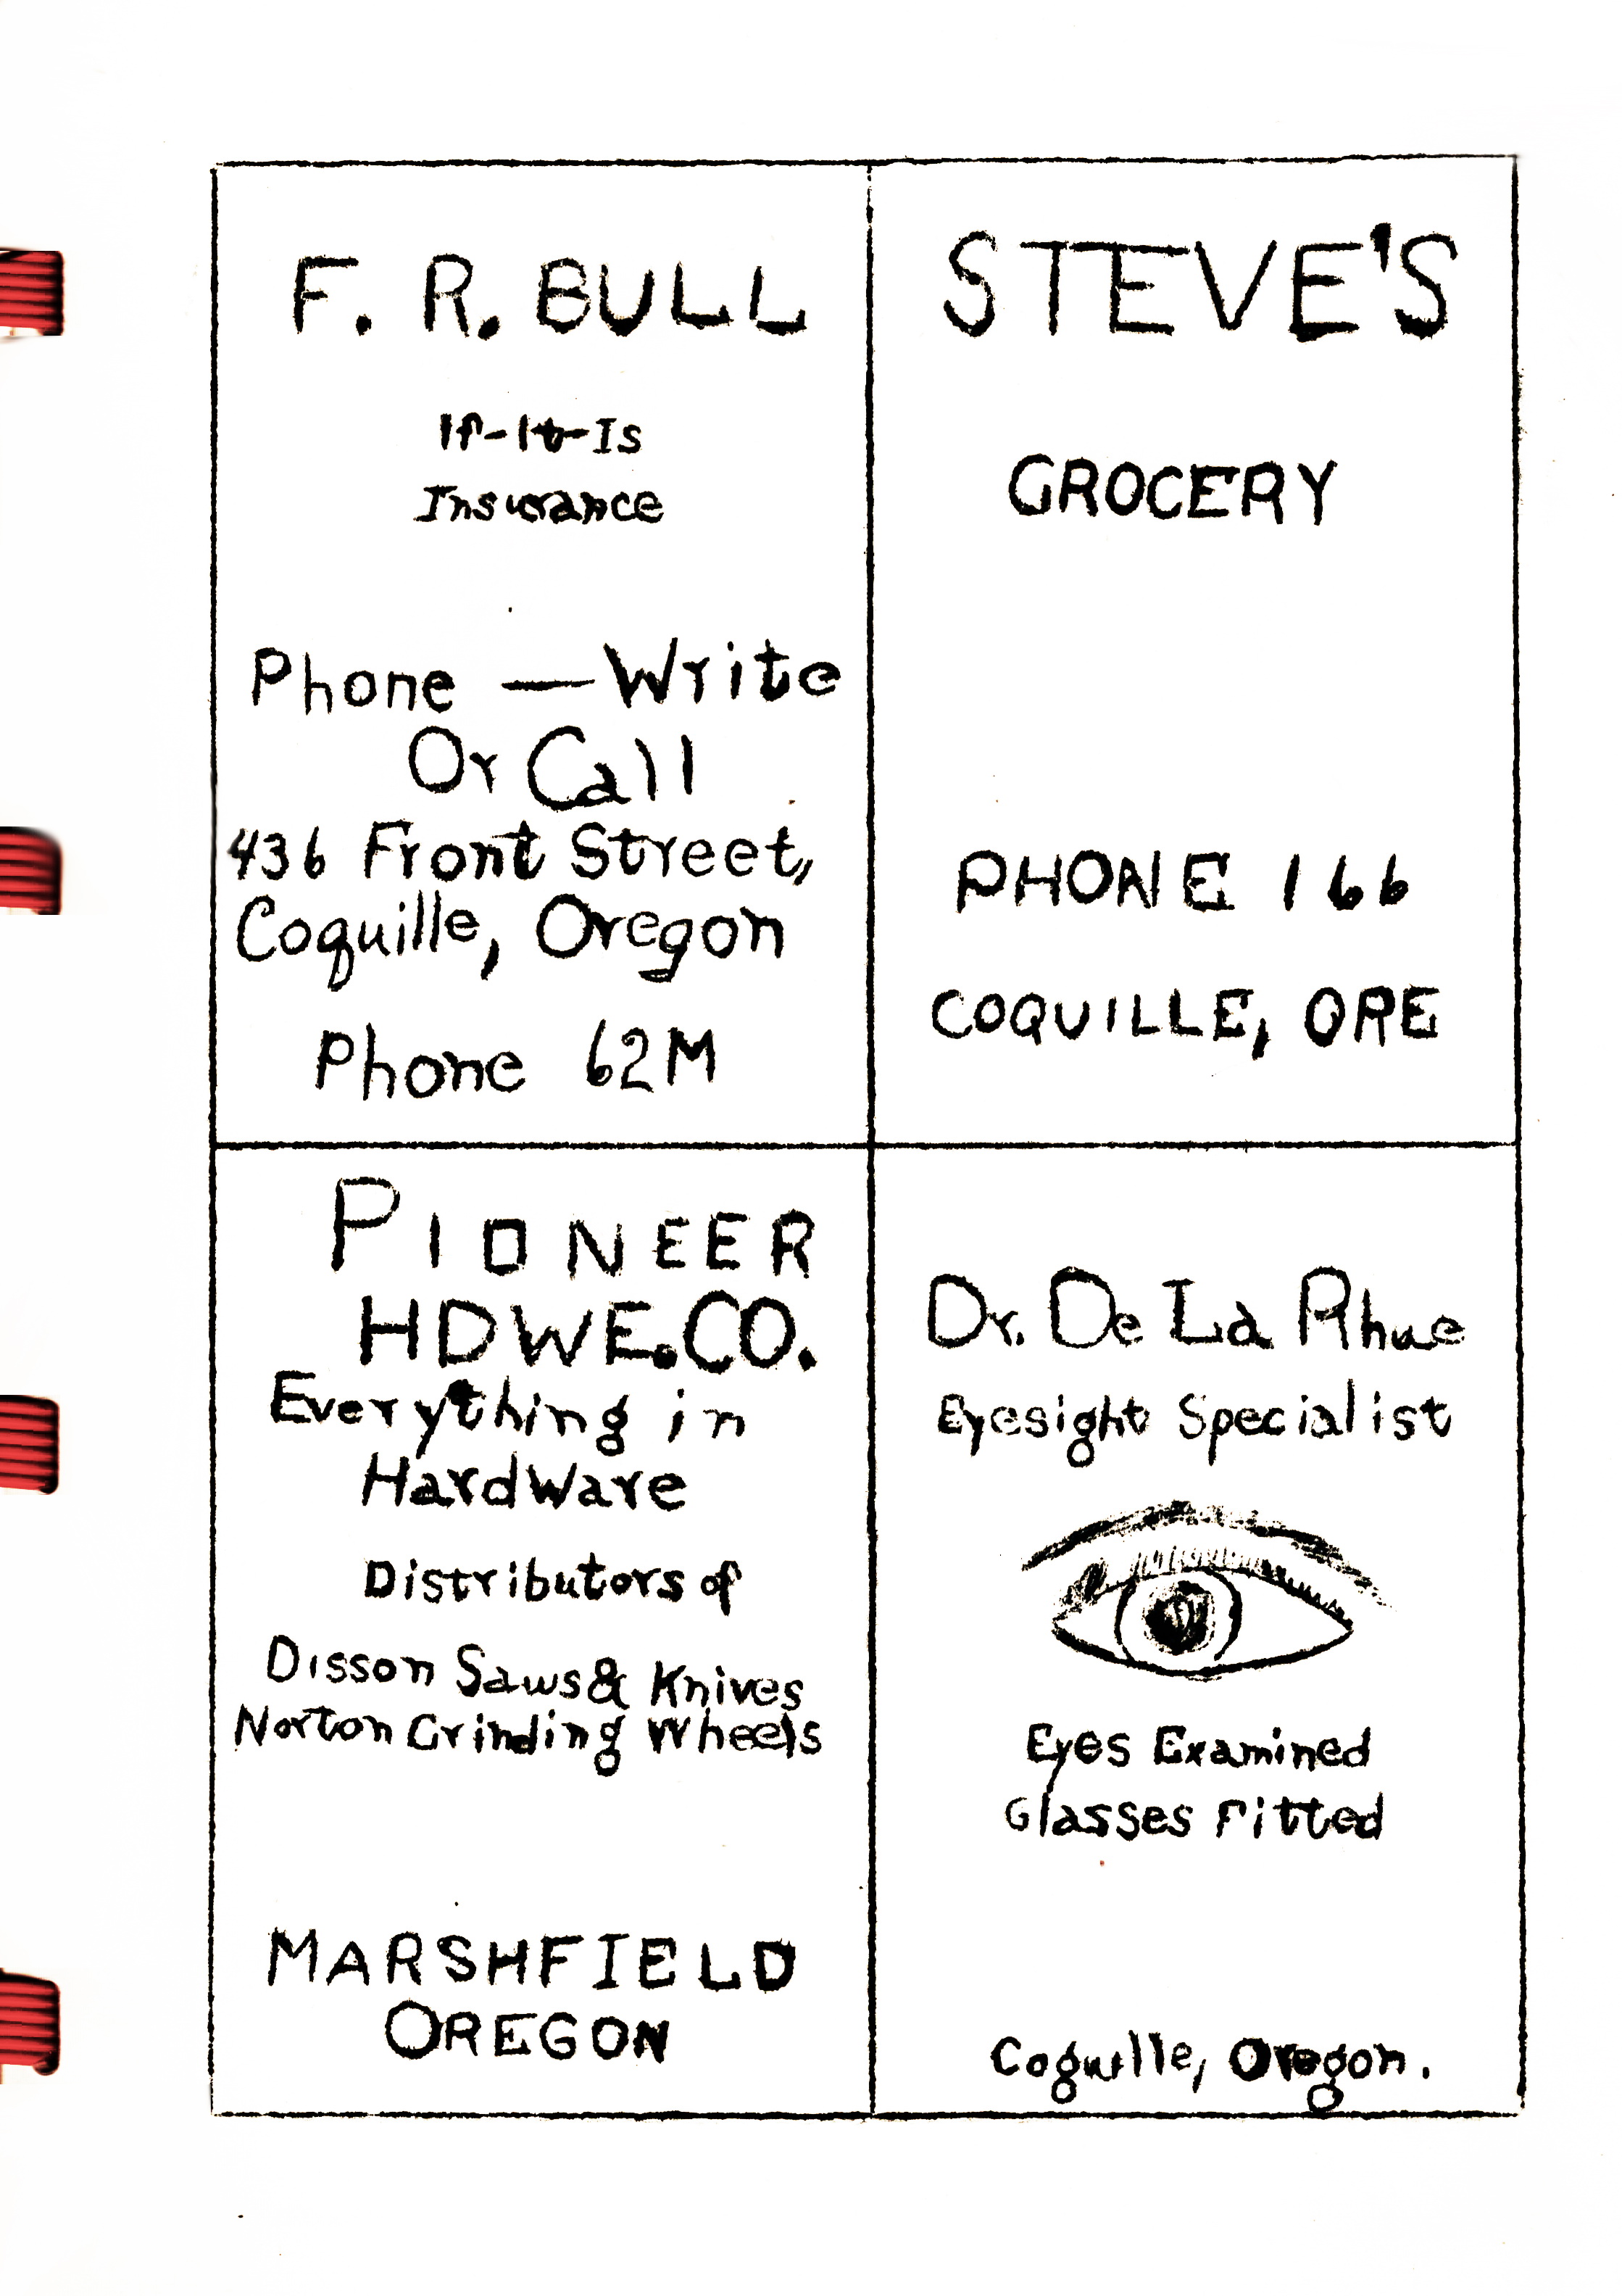 F. R. BULL
If-It-Is
Insurance
Phone — Write
Or Call
436 Front Street,
Coquille, Oregon
Phone 62M
STEVE'S
GROCERY
PHONE 166
COQUILLE, ORE
PIONEER
HDWE.CO.
Everything in
HardWare
Distributors of
Disson Saws & Knives
Norton Grinding Wheels
MARSHFIELD
OREGON
Dr. De La Rhue
Eyesight Specialist
Eyes Examined
Glasses Fitted
Coguille, Oregon.